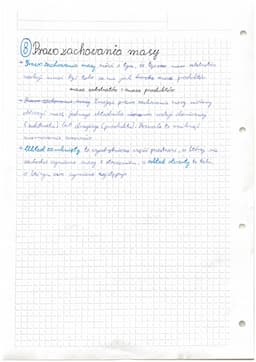 ⑧ Prawo zachowania masy
→ Prawo zachowania masy mówi o tym, że łączna masa substratów
reakcji musi być taka sama jak masa produktów
masa substratów = masa produktów
→ Znając prawo zachowania masy możemy
obliczyć masę jednego składnika reakcji chemicznej
(substratu) lub drugiego (produktu). Pozwala to uniknąć
→ Układ zamknięty to wyodrębniona część przestrzeni, w której nie
zachodzi wymiana masy z otoczeniem, a układ otwarty to taki,
w którym owa wymiana następuje.